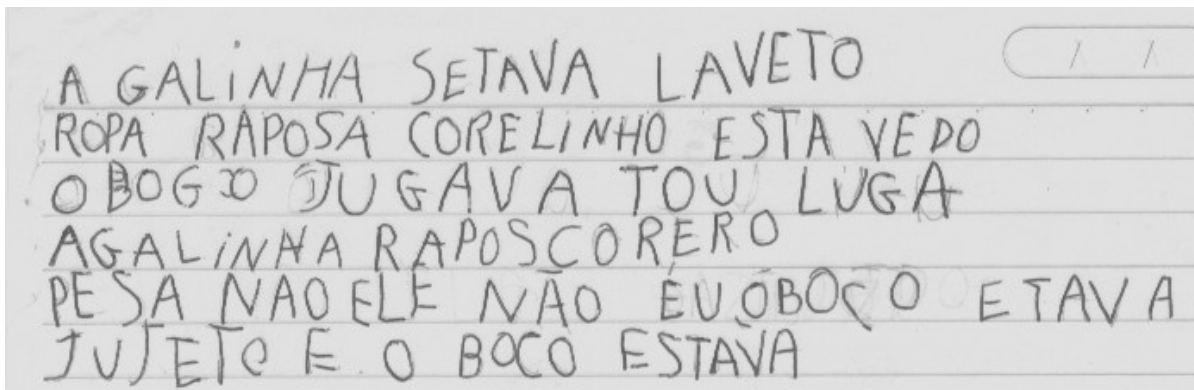 A GALINHA SETAVA LAVETO
ROPA RAPOSA CORELINHO ESTA VEDO
O BOGO JUGAVA TOU LUGA
AGALINHA RAPOSCORERO
PESA NAO ELE NÃO ÉU OBOÇO ETAVA
JUJETO E O BOCO ESTAVA